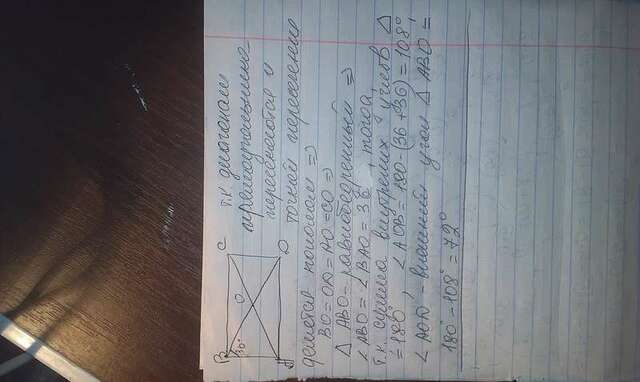 B C
O
36°
A D
т.к. диагонали
прямоугольника
пересекаются и
точкой пересечения
делятся пополам =>
BO = OD = AO = CO =>
△ ABO - равнобедренный =>
∠ABO = ∠BAO = 36°, тогда,
т.к. сумма внутренних углов △
= 180°, ∠AOB = 180 - (36 + 36) = 108°
∠AOD - внешний угол △ ABO =
180° - 108° = 72°